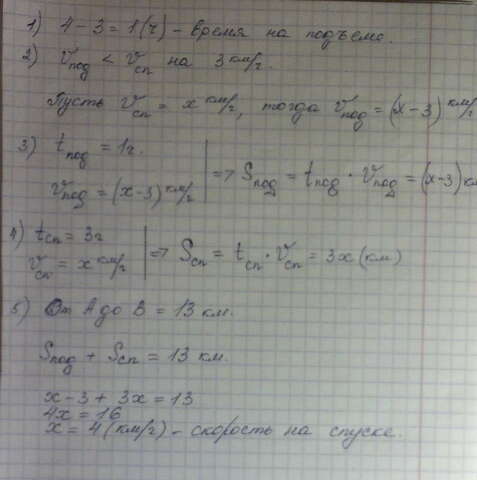 1) 4 - 3 = 1 (ч) - время на подъёме.
2) Vпод < Vсп на 3 км/ч.
Пусть Vсп = x км/ч, тогда Vпод = (x - 3) км/ч
3) tпод = 1ч.
Vпод = (x-3) км/ч => Sпод = tпод · Vпод = (x-3) км
4) tсп = 3ч
Vсп = x км/ч => Sсп = tсп · Vсп = 3x (км)
5) От A до B = 13 км.
Sпод + Sсп = 13 км.
x - 3 + 3x = 13
4x = 16
x = 4 (км/ч) - скорость на спуске.